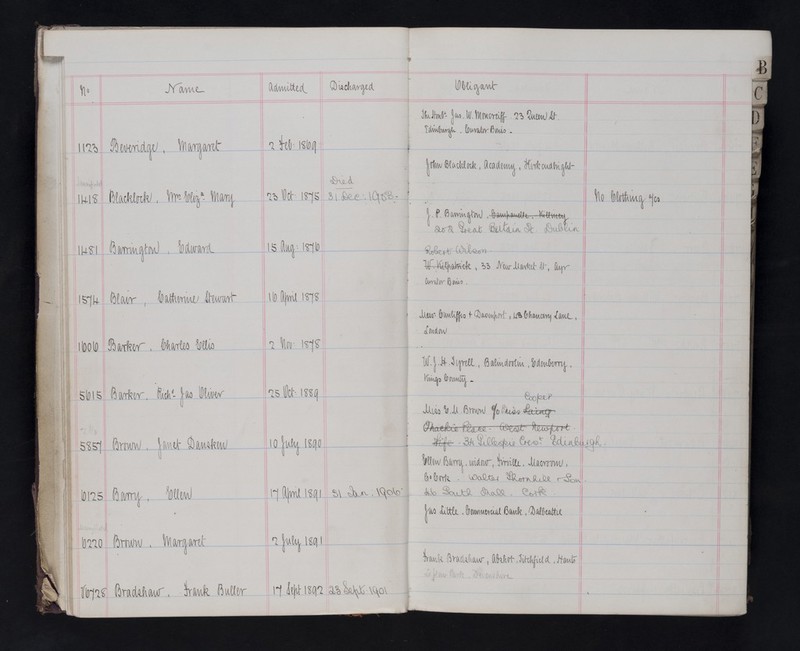 No Name Admitted Discharged Obligant
B
C
D
E
The Honble Jas. W. Moncreiff. 23 Queen St.
Edinburgh. Curator Bonis.
1123 Beveridge, Margaret 2 Feb. 1869
John Blacklock, Academy, Kirkcudbright
Died
1418 Blacklock, Mrs Elizth Mary 23 Oct. 1875 31 Dec. 1905 No Clothing
J. P. Barrington.
202 Great Britain St. Dublin
1481 Barrington, Edward 15 Aug. 1876
Robert Wilson
W. Kilpatrick, 33 New Market St, Ayr
Curator Bonis.
1574 Blair, Catherine Stewart 16 April 1878
Messrs Cunliffes & Davenport, 43 Chancery Lane,
London
1606 Barker, Charles Ellis 2 Nov. 1878
W. J. H. Tyrell, Ballindoolin, Edenderry,
Kings County
5615 Barker, Richd Jas Oliver 25 Oct. 1889
Cooper
Miss E. M. Brown c/o Miss Laing
Place West Newport
Fife. 34 Gillespie Crest Edinburgh.
5857 Brown, Janet Danskew 10 July 1890
Ellen Barry, widow, Macroom,
Co Cork. Walter Thornhill & Son
46 South Mall. Cork
6125 Barry, Ellen 17 April 1891 31 Jan. 1906
Jas Little. Commercial Bank, Dalbeattie
6220 Brown, Margaret 2 July 1891
Frank Bradshaw, Titchfield, Hants
6728 Bradshaw, Frank Butler 17 Sept 1892 28 Sept. 1901